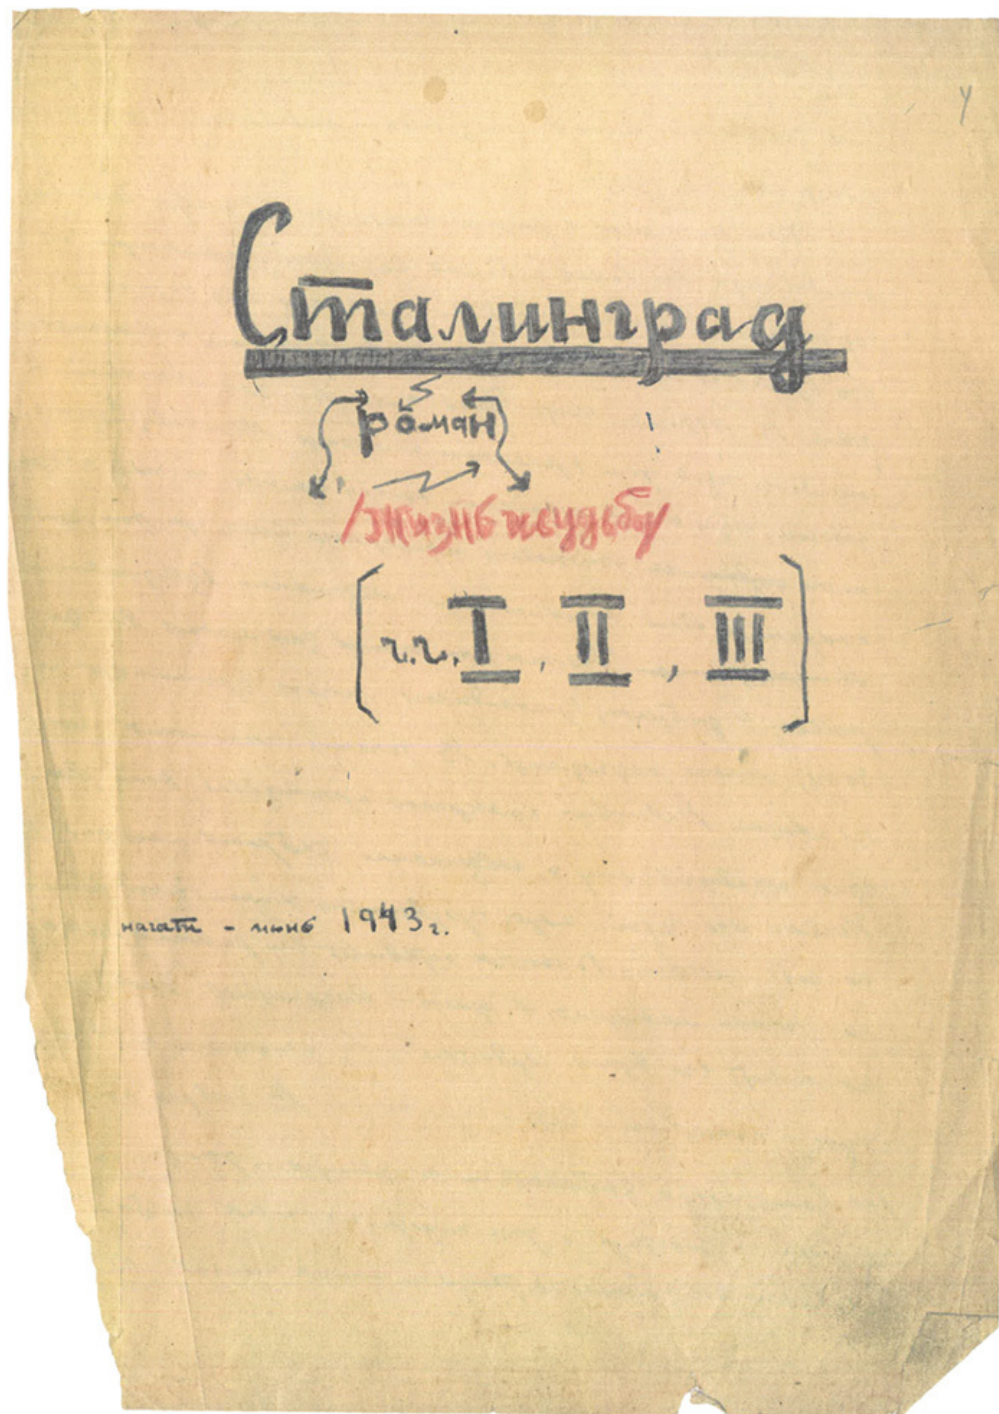 Сталинград
роман
/жизнь и судьба/
[ч.ч. I, II, III]
начат - июнь 1943 г.